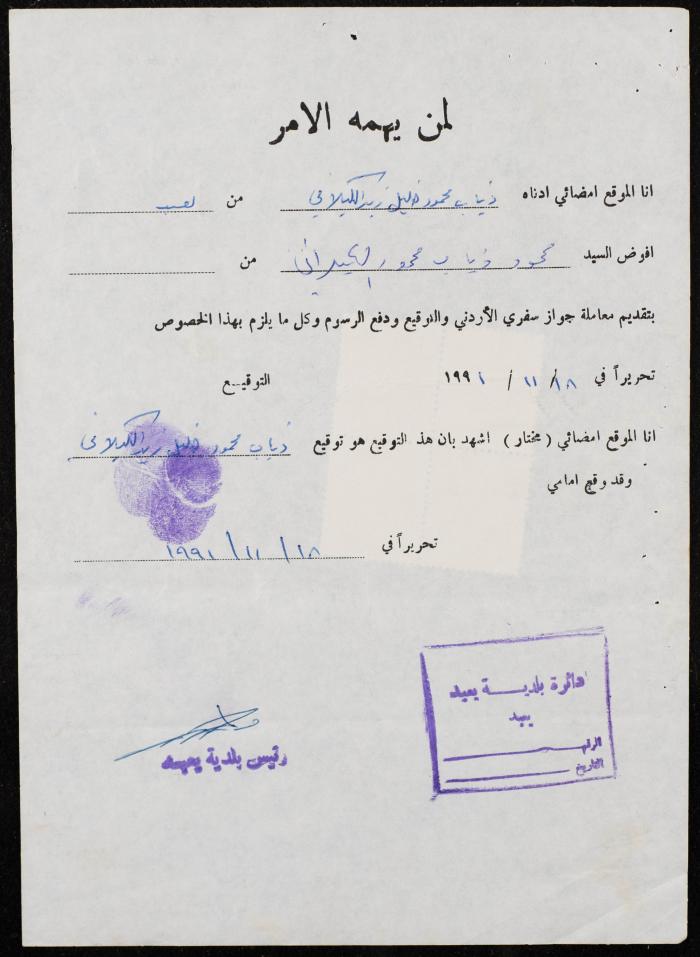 لمن يهمه الامر
انا الموقع امضائي ادناه ذياب محمود خليل زيد الكيلاني من يعبد
افوض السيد محمود ذياب محمود الكيلاني من
بتقديم معاملة جواز سفري الأردني والتوقيع ودفع الرسوم وكل ما يلزم بهذا الخصوص
تحريراً في ١٨ / ١١ / ١٩٩١
التوقيع
انا الموقع امضائي ( مختار ) اشهد بان هذ التوقيع هو توقيع ذياب محمود خليل زيد الكيلاني
وقد وقع امامي
تحريراً في ١٨ / ١١ / ١٩٩١
دائرة بلدية يعبد
يعبد
الرقم
التاريخ
رئيس بلدية يعبد